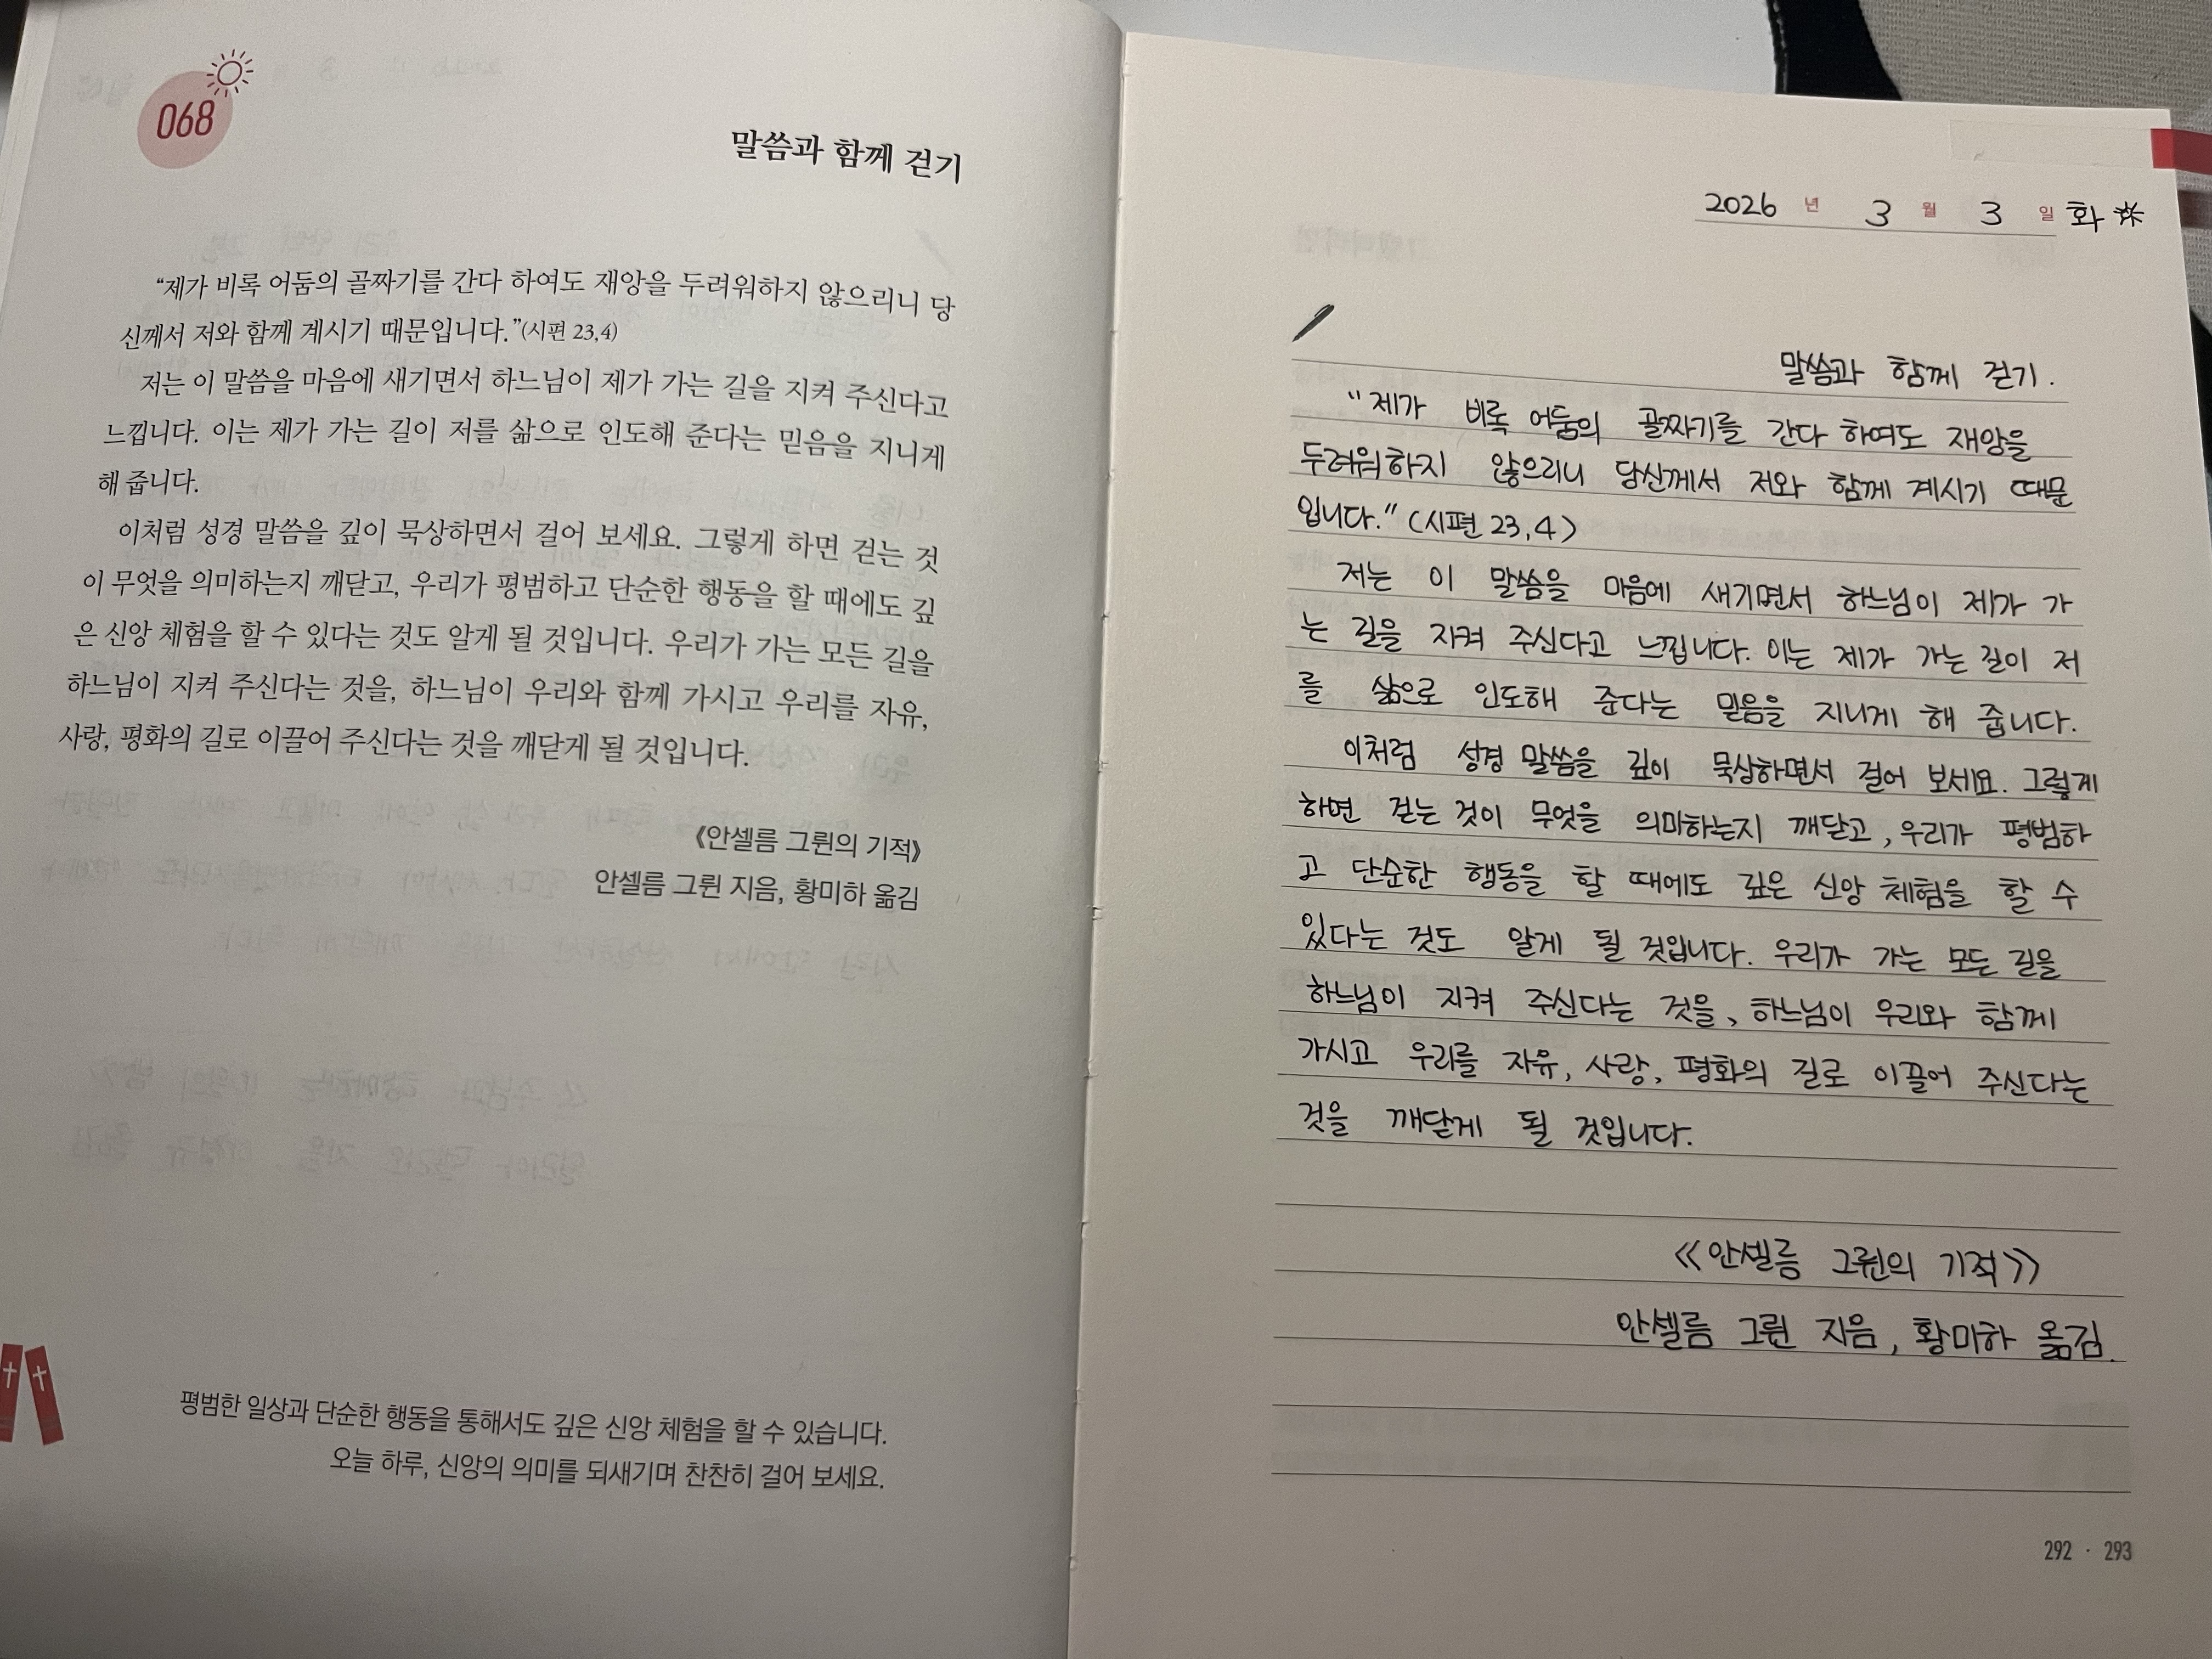 068
말씀과 함께 걷기
“제가 비록 어둠의 골짜기를 간다 하여도 재앙을 두려워하지 않으리니 당
신께서 저와 함께 계시기 때문입니다.”(시편 23,4)
저는 이 말씀을 마음에 새기면서 하느님이 제가 가는 길을 지켜 주신다고
느낍니다. 이는 제가 가는 길이 저를 삶으로 인도해 준다는 믿음을 지니게
해 줍니다.
이처럼 성경 말씀을 깊이 묵상하면서 걸어 보세요. 그렇게 하면 걷는 것
이 무엇을 의미하는지 깨닫고, 우리가 평범하고 단순한 행동을 할 때에도 깊
은 신앙 체험을 할 수 있다는 것도 알게 될 것입니다. 우리가 가는 모든 길을
하느님이 지켜 주신다는 것을, 하느님이 우리와 함께 가시고 우리를 자유,
사랑, 평화의 길로 이끌어 주신다는 것을 깨닫게 될 것입니다.
《안셀름 그륀의 기적》
안셀름 그륀 지음, 황미하 옮김
평범한 일상과 단순한 행동을 통해서도 깊은 신앙 체험을 할 수 있습니다.
오늘 하루, 신앙의 의미를 되새기며 찬찬히 걸어 보세요.
2026 년 3 월 3 일 화
말씀과 함께 걷기.
"제가 비록 어둠의 골짜기를 간다 하여도 재앙을
두려워하지 않으리니 당신께서 저와 함께 계시기 때문
입니다." (시편 23,4)
저는 이 말씀을 마음에 새기면서 하느님이 제가 가
는 길을 지켜 주신다고 느낍니다. 이는 제가 가는 길이 저
를 삶으로 인도해 준다는 믿음을 지니게 해 줍니다.
이처럼 성경 말씀을 깊이 묵상하면서 걸어 보세요. 그렇게
하면 걷는 것이 무엇을 의미하는지 깨닫고, 우리가 평범하
고 단순한 행동을 할 때에도 깊은 신앙 체험을 할 수
있다는 것도 알게 될 것입니다. 우리가 가는 모든 길을
하느님이 지켜 주신다는 것을, 하느님이 우리와 함께
가시고 우리를 자유, 사랑, 평화의 길로 이끌어 주신다는
것을 깨닫게 될 것입니다.
《안셀름 그륀의 기적》
안셀름 그륀 지음, 황미하 옮김.
292 · 293